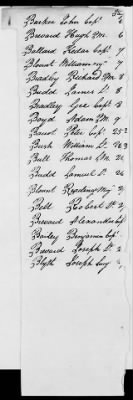 Barker John Capt. 6
Brevard Hugh Pm. 6
Ballard Keder Capt. 7
Blount William 7
Bradley Richard Pm. 8
Budd James Lt. 8
Bradley Gee Capt. 8
Boyd Adam Pm. 9
Bacot Peter Capt. 25
Bush William Lt. 26
Ball Thomas Lt. 2
Budd Samuel Lt. 26
Blount Reading Maj.
Bell Robert Lt. 2
Brevard Alexander Capt
Bailey Benjamin Capt.
Brevard Joseph Lt. 2
Blyth Joseph Surg